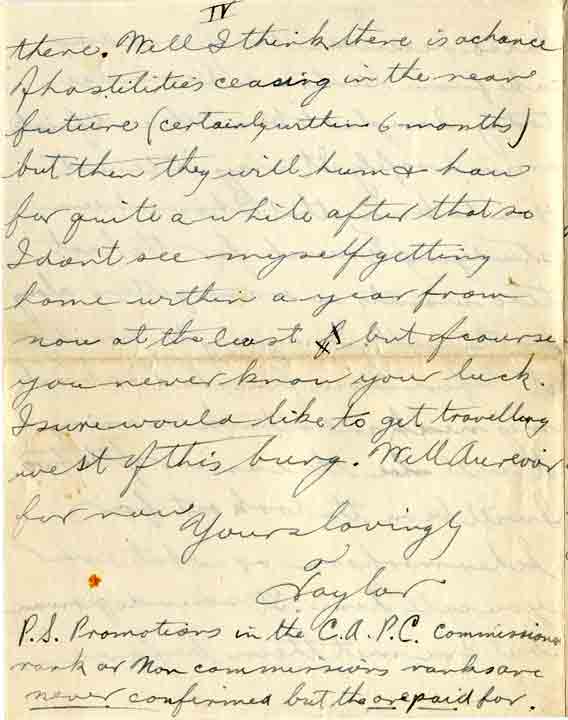 IV
there. Well I think there is a chance
of hostilities ceasing in the near
future (certainly within 6 months)
but then they will hum & haw
for quite a while after that so
I don't see myself getting
home within a year from
now at the least but of course
you never know your luck.
I sure would like to get travelling
west of this burg. Well Aurevoir
for now
Yours lovingly
Taylor
P.S. Promotions in the C.A.P.C. commission
rank or Non commissions ranks are
never confirmed but the are paid for.